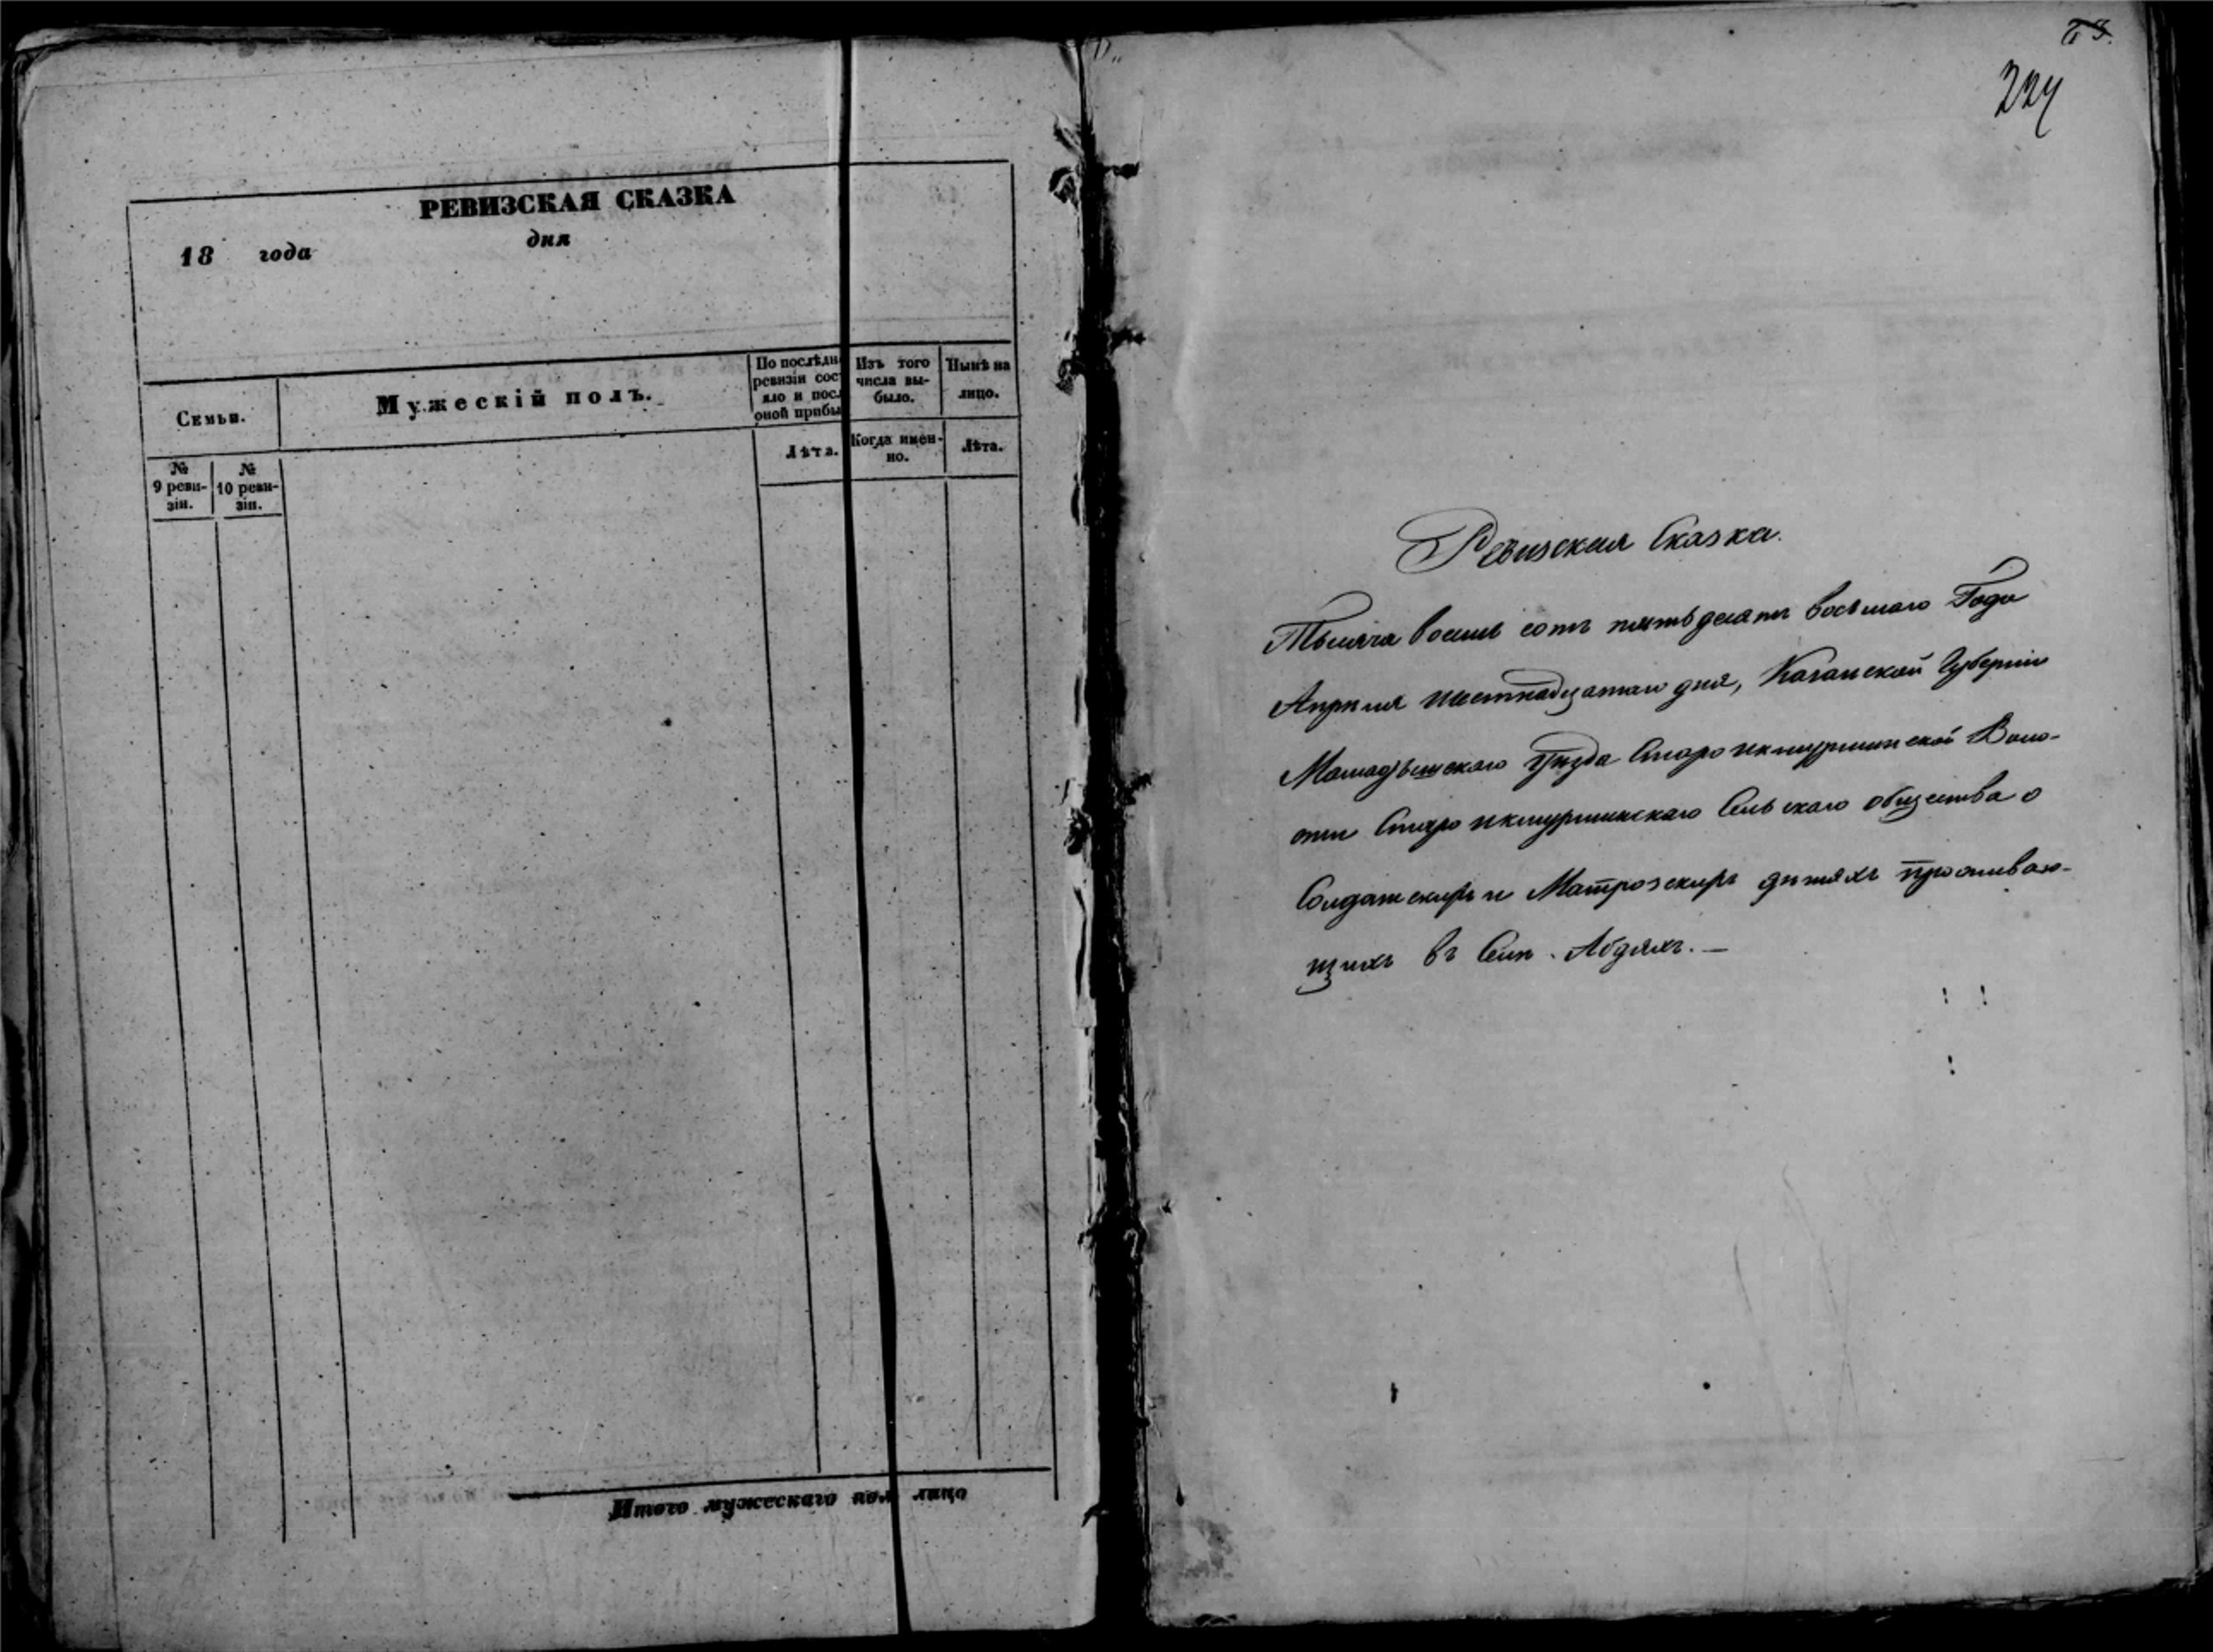 РЕВИЗСКАЯ СКАЗКА
18 года дня
Семьи.
Мужескій полъ.
По послѣдн
ревизіи сос
яло и посл
оной прибы
Изъ того
числа вы-
было.
Нынѣ на
лицо.
Лѣта.
Когда имен-
но.
Лѣта.
№
9 реви-
зіи.
№
10 реви-
зіи.
Итого мужескаго пол лицо
224
Ревизская Сказка.
Тысяча восемь сотъ пятьдесятъ восьмаго Года
Апрѣля шестнадцатаго дня, Казанской Губерніи
Мамадышскаго Уѣзда Староикшурминской Воло-
сти Староикшурминскаго Сельскаго общества о
Солдатскихъ и Матросскихъ дѣтяхъ проживаю-
щихъ въ Селѣ Абдяхъ. —